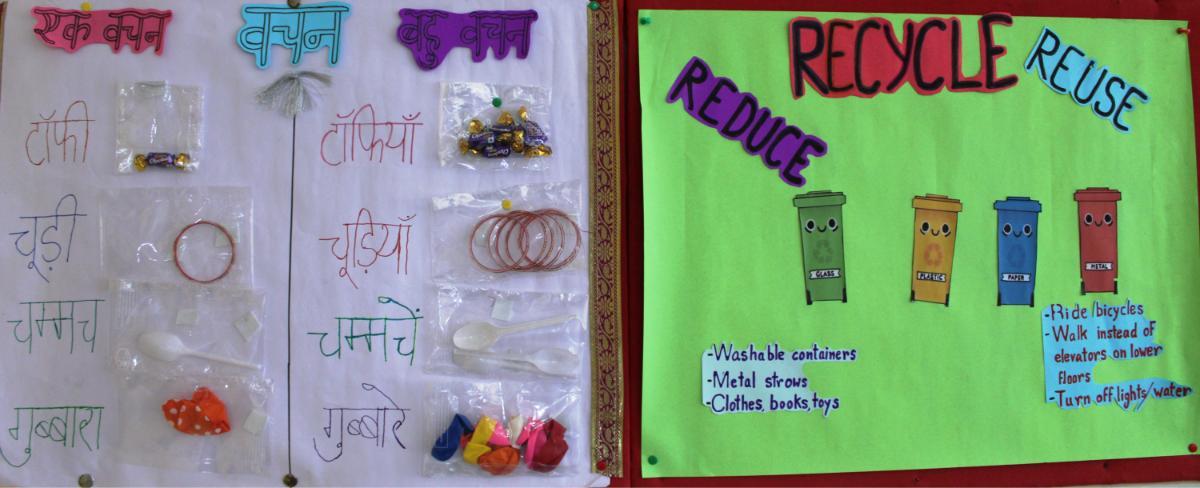 एक वचन
वचन
बहु वचन
टॉफी
टॉफियाँ
चूड़ी
चूड़ियाँ
चम्मच
चम्मचें
गुब्बारा
गुब्बारे
REDUCE
RECYCLE
REUSE
GLASS
PLASTIC
PAPER
METAL
-Washable containers
-Metal strows
-Clothes, books, toys
-Ride /bicycles
-Walk instead of
elevators on lower
floors
-Turn off lights/water